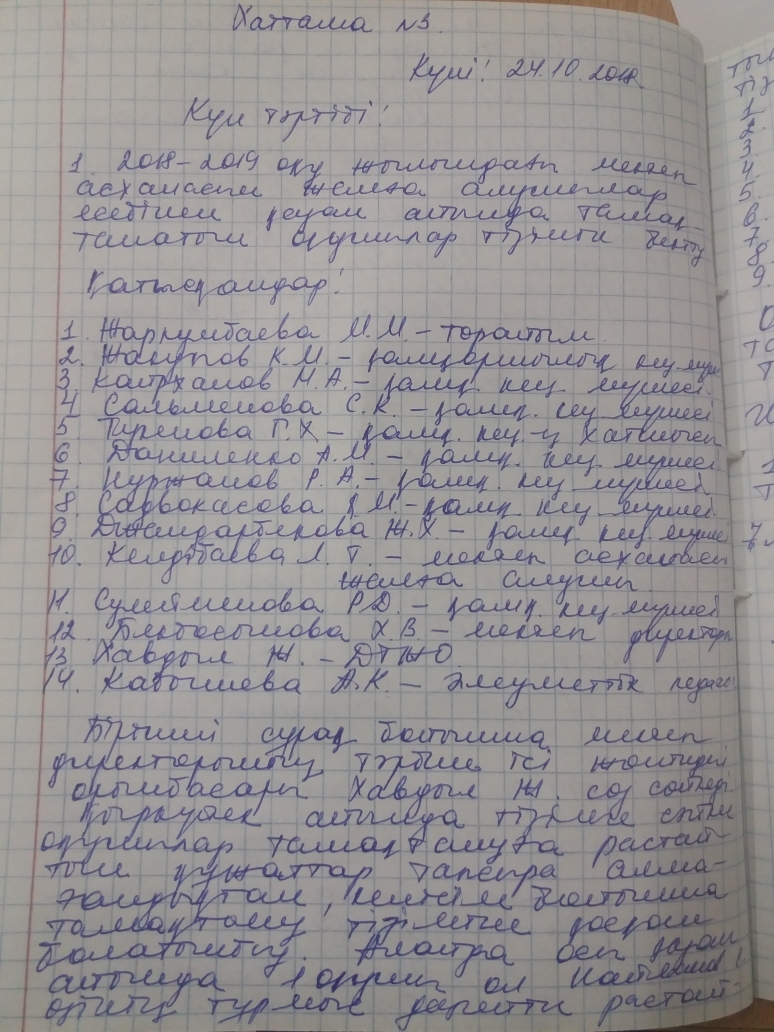 Хаттама №3.
Күні! 24.10.2018
Күн тәртібі!
1. 2018-2019 оқу жылындағы мектеп
асханасын жалға алушылар
есебінен қазан айында тамақ-
танатын оқушылар тізімін бекіту
Қатысқандар!
1. Жаркумбаева М.М. - төрайым.
2. Жакупов К.М. - қамқоршылық кең мүше
3 Каирханов М.А. - қамқ. кең мүшесі.
4 Сальменова С.К. - қамқ. кең мүшесі
5 Туренова Г.Х - қамқ. кең-ң хатшысы
6 Даниленко А.М. - қамқ. кең мүшесі
7. Нуржанов Р.А. - қамқ. кең мүшесі
8. Садвокасова К.М. - қамқ кең мүшесі
9. Джандарбекова Ж.Х. - қамқ кең мүше
10. Келдібаева Л.Т. - мектеп асханасын
жалға алушы.
11. Сулейменова Р.Д. - қамқ. кең мүшесі
12. Бекбосынова Х.В - мектеп директоры
13 Хавдыл Ж. - ДТЖО
14. Кабышева А.К. - Әлеуметтік педаго
Бірінші сұрақ бойынша мектеп
директорының тәрбие ісі жөніндегі
орынбасары Хавдыл Ж. сөз сөйледі
Қыркүйек айында тізімге енген
оқушылар тамақтануға растай-
тын құжаттар тапсыра алма-
ғандықтан, келісім бойынша
тамақтану тізімінен
болатынбыз. Алайда осы қазан
айында 1 оқушы ол
оқитын тұрмыс растайт-